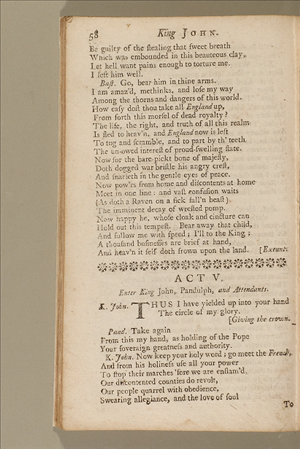 58 King JOHN.
Be guilty of the ſtealing that ſweet breath
Which was embounded in this beauteous clay,
Let hell want pains enough to torture me.
I left him well.
Baſt. Go, bear him in thine arms.
I am amaz'd, methinks, and loſe my way
Among the thorns and dangers of this world.
How eaſy doſt thou take all England up,
From forth this morſel of dead royalty!
The life, the right, and truth of all this realm
Is fled to heav'n, and England now is left
To tug and ſcramble, and to part by th' teeth
The unowed intereſt of proud-ſwelling ſtate.
Now for the bare-pickt bone of majeſty,
Doth dogged war briſtle his angry creſt,
And ſnarleth in the gentle eyes of peace.
Now pow'rs from home and diſcontents at home
Meet in one line: and vaſt confuſion waits
(As doth a Raven on a ſick fall'n beaſt)
The imminent decay of wreſted pomp.
Now happy he, whoſe cloak and cincture can
Hold out this tempeſt. Bear away that child,
And follow me with ſpeed; I'll to the King;
A thouſand buſineſſes are brief at hand,
And heav'n it ſelf doth frown upon the land. [Exeunt.
ACT V.
Enter King John, Pandulph, and Attendants.
K. John. THUS I have yielded up into your hand
The circle of my glory.
[Giving the crown.
Pand. Take again
From this my hand, as holding of the Pope
Your ſoveraign greatneſs and authority.
K. John. Now keep your holy word; go meet the French,
And from his holineſs uſe all your power
To ſtop their marches 'fore we are enflam'd.
Our diſcontented counties do revolt,
Our people quarrel with obedience,
Swearing allegiance, and the love of ſoul
To